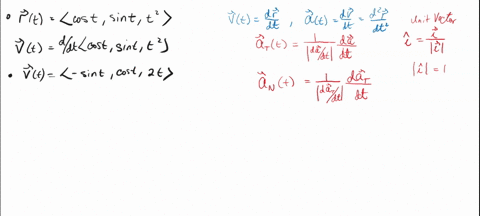 • r⃗(t) = <cost, sint, t²>
v⃗(t) = d/dt<cost, sint, t²>
• v⃗(t) = <-sint, cost, 2t>
v⃗(t) = dr⃗/dt , a⃗(t) = dv⃗/dt = d²r⃗/dt²
a⃗_T(t) = 1/|da⃗/dt| da⃗/dt
a⃗_N(t) = 1/|da⃗_T/dt| da⃗_T/dt
Unit Vector
î = i⃗/|i⃗|
|î| = 1